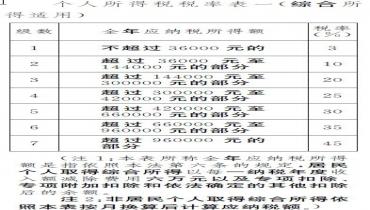 个人所得税税率表一(综合所
得适用)
级数 全年应纳税所得额 税率
(%)
1 不超过36000元的 3
2 超过36000元至
144000元的部分 10
3 超过144000元至
300000元的部分 20
4 超过300000元至
420000元的部分 25
5 超过420000元至
660000元的部分 30
6 超过660000元至
960000元的部分 35
7 超过960000元的
部分 45
(注1:本表所称全年应纳税所得
额是指依照本法第六条的规定,居民
个人取得综合所得以每一纳税年度收
入额减除费用六万元以及专项扣除、
专项附加扣除和依法确定的其他扣除
后的余额。
注2:非居民个人取得综合所得依
照本表按月换算后计算应纳税额。)